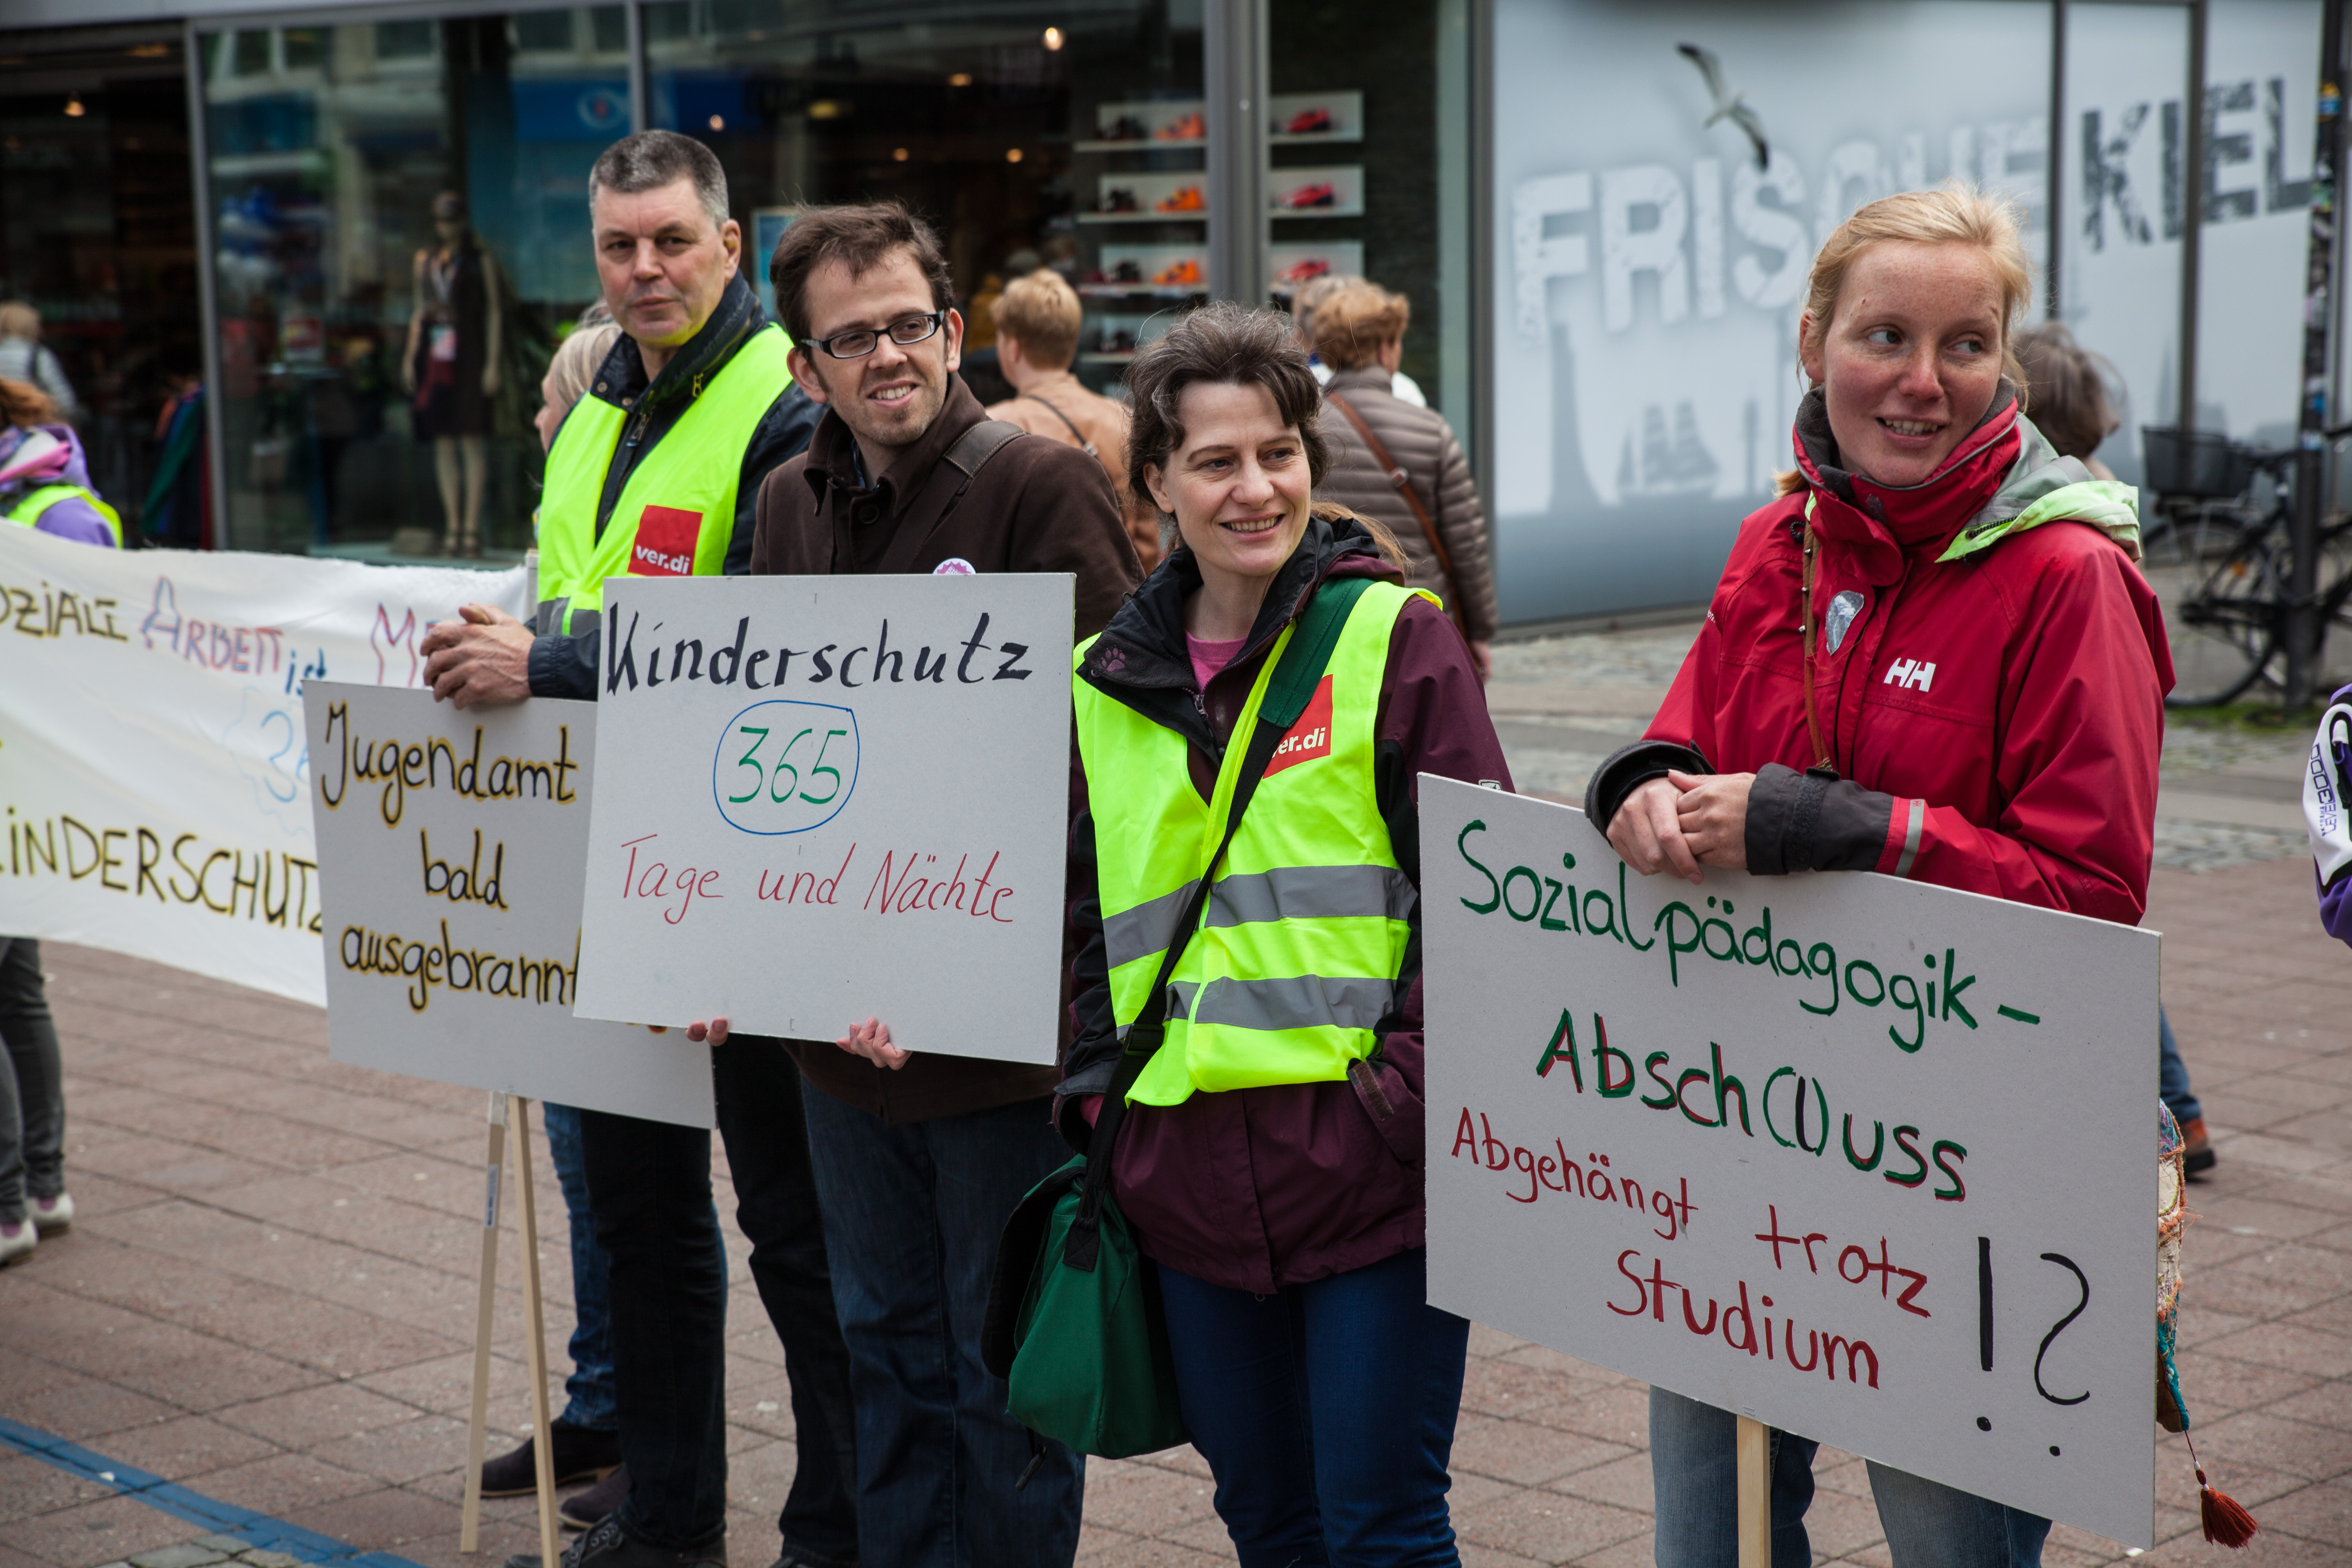 FRISCHE KIEL
ver.di
SOZIALE ARBEIT ist
KINDERSCHUTZ
Jugendamt
bald
ausgebrannt
Kinderschutz
365
Tage und Nächte
er.di
HH
Sozialpädagogik-
Absch(l)uss
Abgehängt trotz
Studium !?